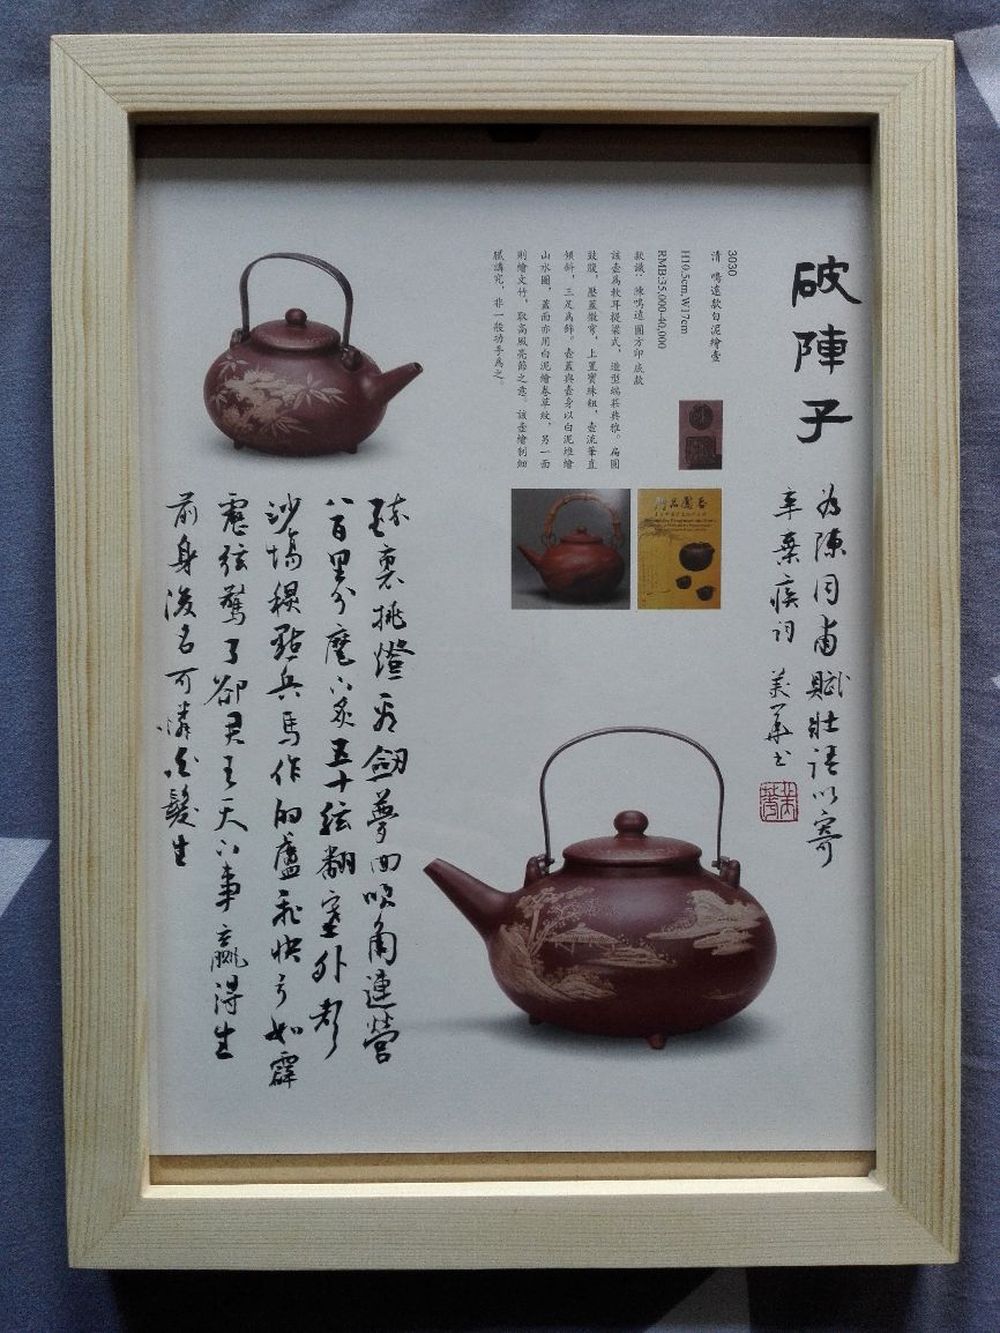 破陣子
為陳同甫賦壯語以寄
辛棄疾詞 美華书
3030
清 鳴遠款白泥繪壺
H10.5cm, W17cm
RMB:35,000-40,000
款識：陳鳴遠圓方印底款
該壺為軟耳提梁式，造型端莊典雅。扁圓
鼓腹，壓蓋微穹，上置寶珠鈕，壺流筆直
傾斜，三足為飾。壺蓋與壺身以白泥堆繪
山水圖，蓋面亦用白泥繪卷草紋，另一面
則繪文竹，取高風亮節之意。該壺繪制細
膩講究，非一般功手為之。
裏挑燈看劔夢回吹角連營
八百里分麾下炙五十弦翻塞外聲
沙場秋點兵馬作的盧飛快弓如霹
靂弦驚了卻君王天下事贏得生
前身後名可憐白髮生